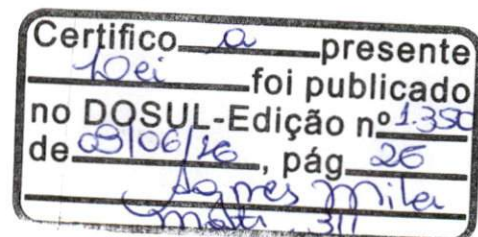 Certifico a presente
Lei foi publicado
no DOSUL-Edição nº 1.350
de 09/06/16, pág 26
Agnes Miler
Matr. 311